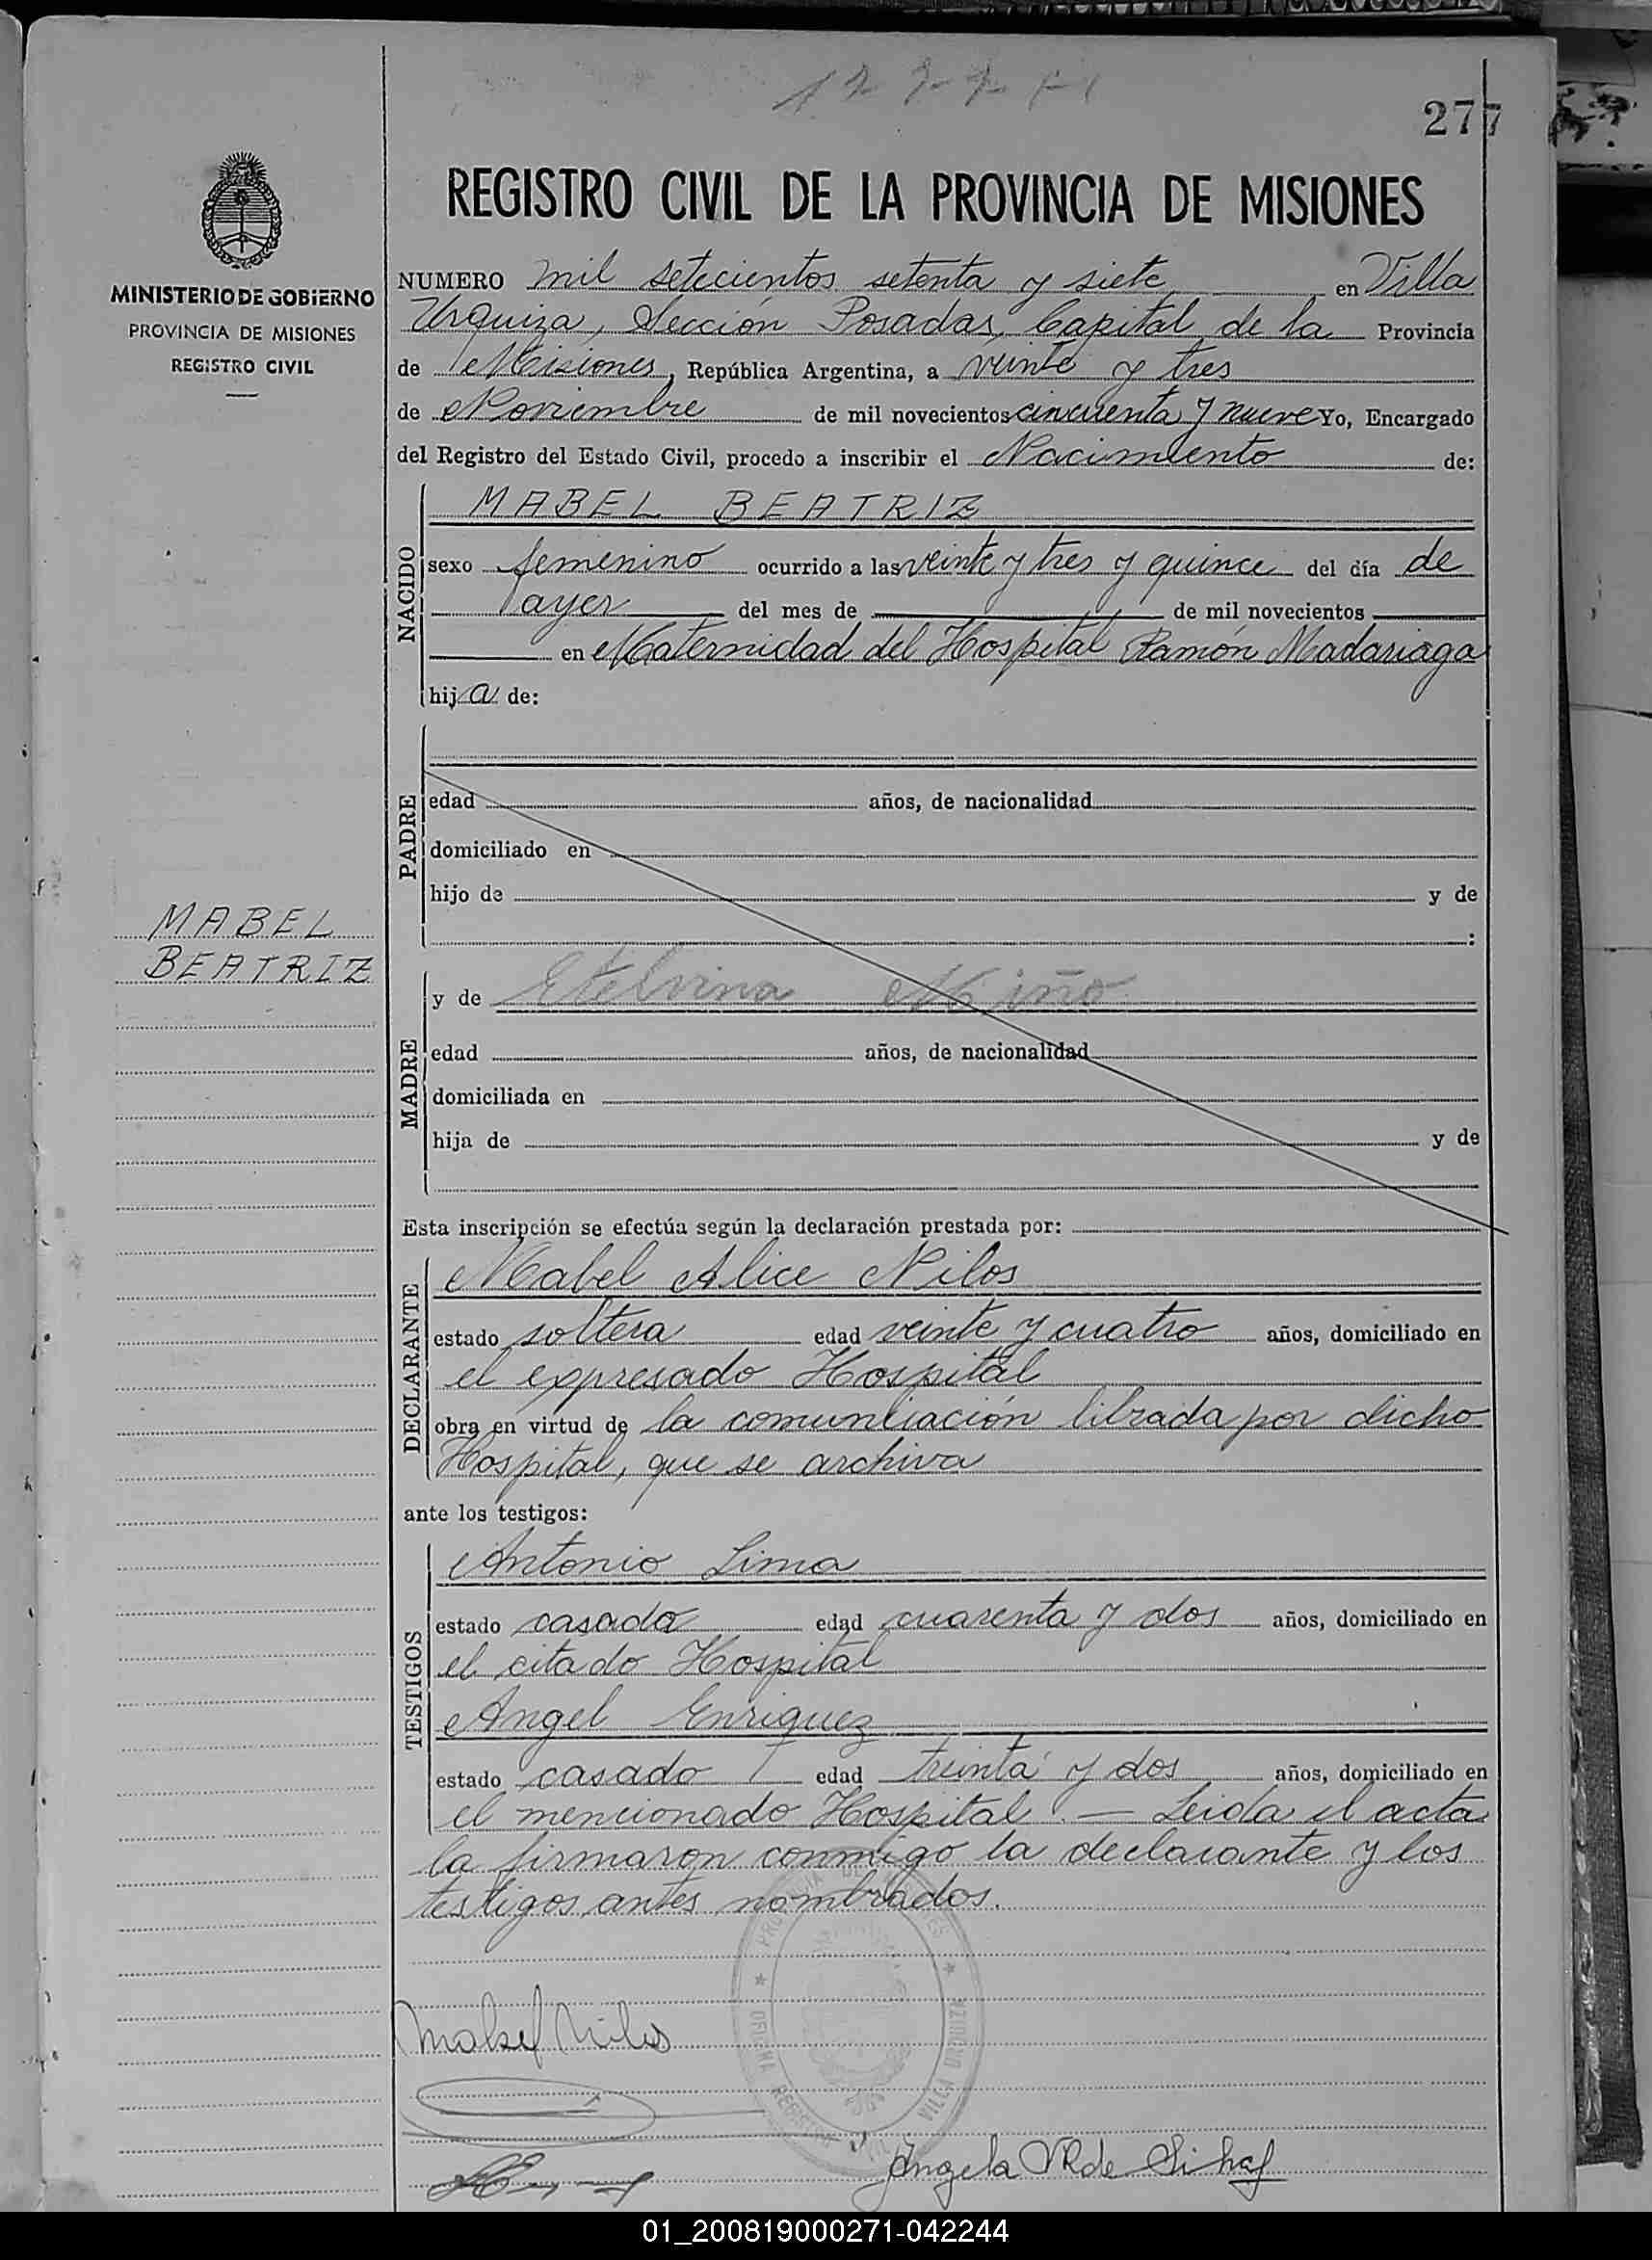 277
REGISTRO CIVIL DE LA PROVINCIA DE MISIONES
MINISTERIO DE GOBIERNO
PROVINCIA DE MISIONES
REGISTRO CIVIL
NUMERO mil setecientos setenta y siete en Villa
Urquiza, Sección Posadas, Capital de la Provincia
de Misiones, República Argentina, a veinte y tres
de Noviembre de mil novecientos cincuenta y nueve Yo, Encargado
del Registro del Estado Civil, procedo a inscribir el Nacimiento de:
NACIDO
MABEL BEATRIZ
sexo femenino ocurrido a las veinte y tres y quince del día de
ayer del mes de de mil novecientos
en Maternidad del Hospital Ramón Madariaga
hija de:
PADRE
edad años, de nacionalidad
domiciliado en
hijo de y de
:
MABEL
BEATRIZ
MADRE
y de Etelvina Miño
edad años, de nacionalidad
domiciliada en
hija de y de
Esta inscripción se efectúa según la declaración prestada por:
DECLARANTE
Mabel Alice Nilos
estado soltera edad veinte y cuatro años, domiciliado en
el expresado Hospital
obra en virtud de la comunicación librada por dicho
Hospital, que se archiva
ante los testigos:
TESTIGOS
Antonio Lima
estado casado edad cuarenta y dos años, domiciliado en
el citado Hospital
Angel Enriquez
estado casado edad treinta y dos años, domiciliado en
el mencionado Hospital. — Leida el acta
la firmaron conmigo la declarante y los
testigos antes nombrados.
Mabel Nilos
OFICINA REGISTRO CIVIL VILLA URQUIZA
Angela
01_200819000271-042244